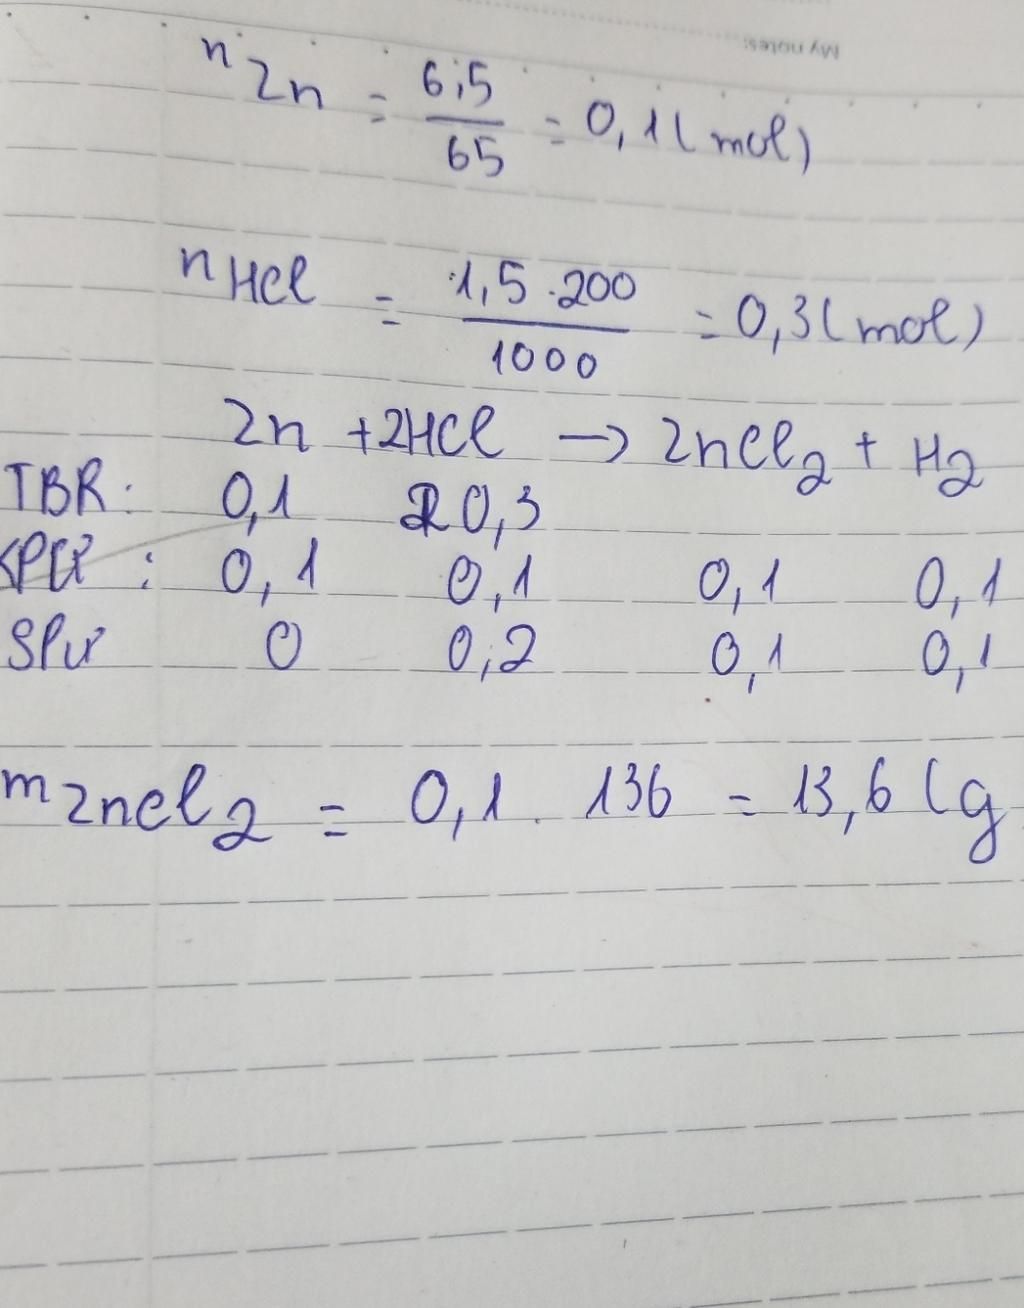 My notes:
nZn = 6,5/65 = 0,1 (mol)
nHCl = 1,5.200/1000 = 0,3 (mol)
Zn + 2HCl → ZnCl2 + H2
TBR: 0,1 0,3
: 0,1 0,1 0,1 0,1
0 0,2 0,1 0,1
mZnCl2 = 0,1 . 136 = 13,6 (g